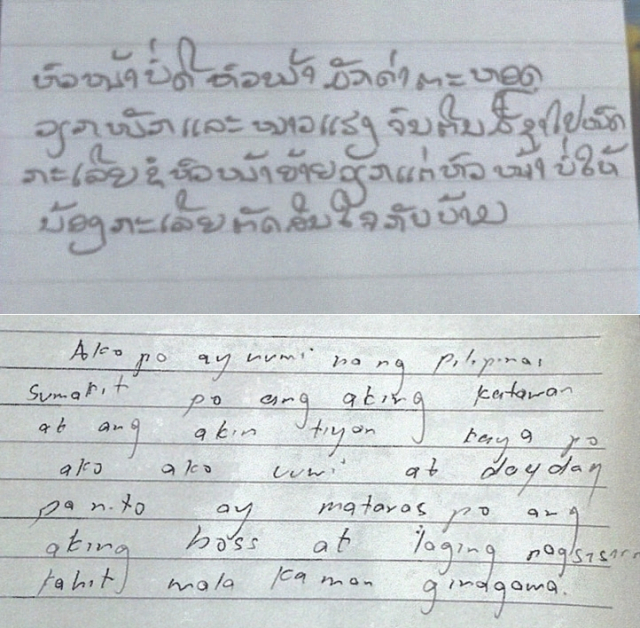 ຫົວໜ້າບໍ່ດີ ຫົວໜ້າ ມັກດ່າຕະຫອດ
ວຽກໜັກ ແລະ ໜາວແຮງ ຈົນຕີນ
ກະເລີຍຂໍຫົວໜ້າຍ້າຍວຽກແຕ່ຫົວໜ້າບໍ່ໃຫ້
ນ້ອງກະເລີຍຕັດສິນໃຈກັບບ້ານ
Ako po ay uuwi na ng Pilipinas
Sumakit po ang aking katawan
at ang akin tiyan kaya po
ako ako uuwi at
pa n.to ay mataras po ang
aking boss at laging
kahit wala ka man ginagawa.